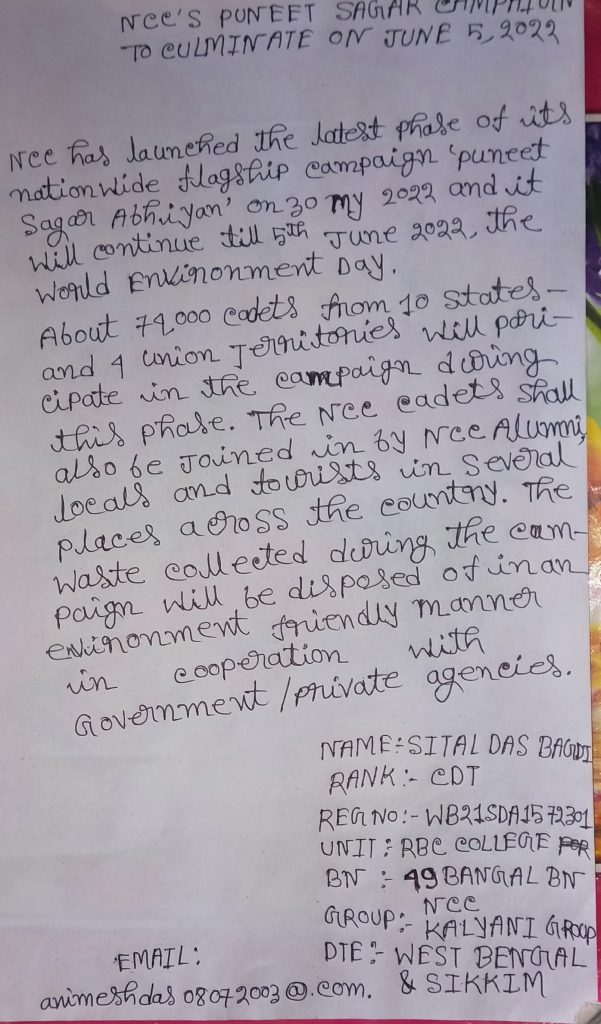 NCC'S PUNEET SAGAR CAMPAIGN
TO CULMINATE ON JUNE 5, 2022
NCC has launched the latest phase of its
nationwide flagship campaign 'puneet
Sagar Abhiyan' on 30 my 2022 and it
will continue till 5th June 2022, the
World Envinonment Day.
About 74,000 cadets from 10 states-
and 4 union Territories will pari-
cipate in the campaign during
this phase. The NCC cadets shall
also be Joined in by NCC Alumni,
locals and tourists in several
places across the country. The
waste collected during the cam-
paign will be disposed of in an
envinonment friendly manner
in cooperation with
Government/private agencies.
NAME:- SITAL DAS BAGDI
RANK:- CDT
REG NO:- WB21SDA1572301
UNIT:- RBC COLLEGE FOR
BN :- 49 BANGAL BN
NCC
GROUP:- KALYANI GROUP
DTE:- WEST BENGAL
& SIKKIM
EMAIL:
animeshdas08072003@.com.